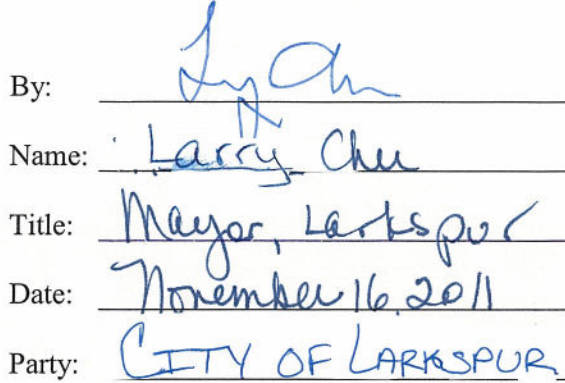 By:
Name: Larry Chu
Title: Mayor, Larkspur
Date: November 16, 2011
Party: CITY OF LARKSPUR